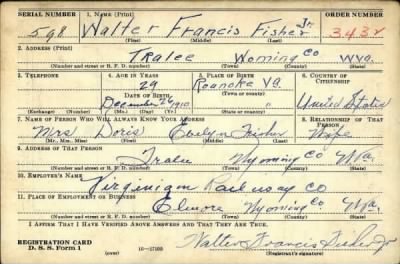 SERIAL NUMBER 1. NAME (Print) ORDER NUMBER
598 Walter Francis Fisher Jr. 3432
(First) (Middle) (Last)
2. ADDRESS (Print)
Tralee Woming Co W.Va.
(Number and street or R. F. D. number) (Town) (County) (State)
3. TELEPHONE 4. AGE IN YEARS 5. PLACE OF BIRTH 6. COUNTRY OF CITIZENSHIP
29 Roanoke Va.
DATE OF BIRTH (Town or county)
December 29 1910 United States
(Exchange) (Number) (Mo.) (Day) (Yr.) (State or country)
7. NAME OF PERSON WHO WILL ALWAYS KNOW YOUR ADDRESS 8. RELATIONSHIP OF THAT PERSON
Mrs Doris Evelyn Fisher Wife
(Mr., Mrs., Miss) (First) (Middle) (Last)
9. ADDRESS OF THAT PERSON
Tralee Wyoming Co W.Va.
(Number and street or R. F. D. number) (Town) (County) (State)
10. EMPLOYER'S NAME
Virginian Railway Co
11. PLACE OF EMPLOYMENT OR BUSINESS
Elmore Wyoming Co W.Va.
(Number and street or R. F. D. number) (Town) (County) (State)
I AFFIRM THAT I HAVE VERIFIED ABOVE ANSWERS AND THAT THEY ARE TRUE.
REGISTRATION CARD
D. S. S. Form 1 (over) 16—17105 Walter Francis Fisher Jr
(Registrant's signature)